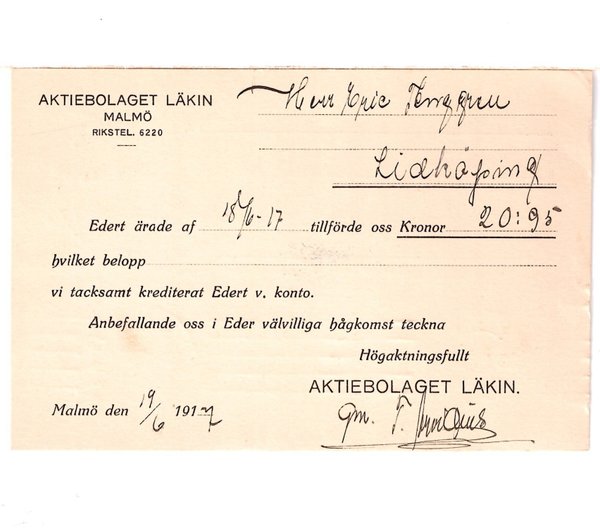 AKTIEBOLAGET LÄKIN
MALMÖ
RIKSTEL. 6220
Herr Eric Tenggren
Lidköping
Edert ärade af 18/6-17 tillförde oss Kronor 20:95
hvilket belopp
vi tacksamt krediterat Edert v. konto.
Anbefallande oss i Eder välvilliga hågkomst teckna
Högaktningsfullt
AKTIEBOLAGET LÄKIN.
Malmö den 19/6 1917
gm. T.